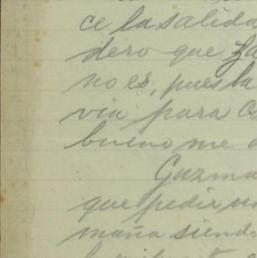 ce la salida
dero que
no es, pues la
via para
bueno me
Guzma
que pedir un
maña siendo